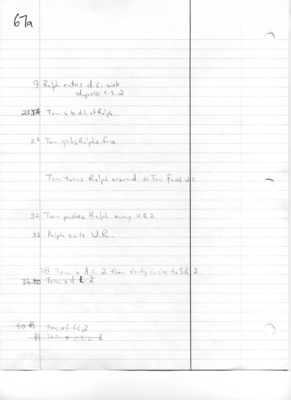 67a
9 Ralph enters d.L. with
stops @ C.S. 2
Tom x to d.L of Ralph
Tom grabs Ralphs face
Tom turns Ralph around so Tom faces
32 Tom pushes Ralph away
33 Ralph exits U.R.
Tom x d L 2 then slowly circles to S.R. 2
36 Tom x d L 2
40 Tom x
41 Tom x